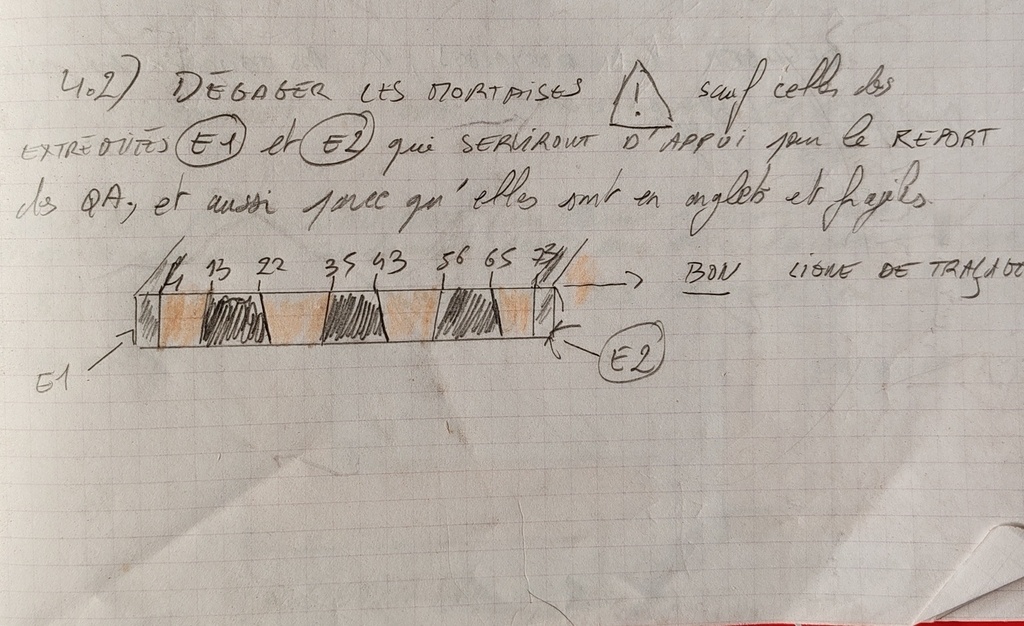 4.2) DÉGAGER LES MORTAISES ! sauf celles des
EXTRÉMITÉS E1 et E2 qui SERVIRONT D'APPUI pour le REPORT
des QA, et aussi parce qu'elles sont en onglets et fragiles.
4 13 22 35 43 56 65 73
BON LIGNE DE TRAÇAGE
E1
E2